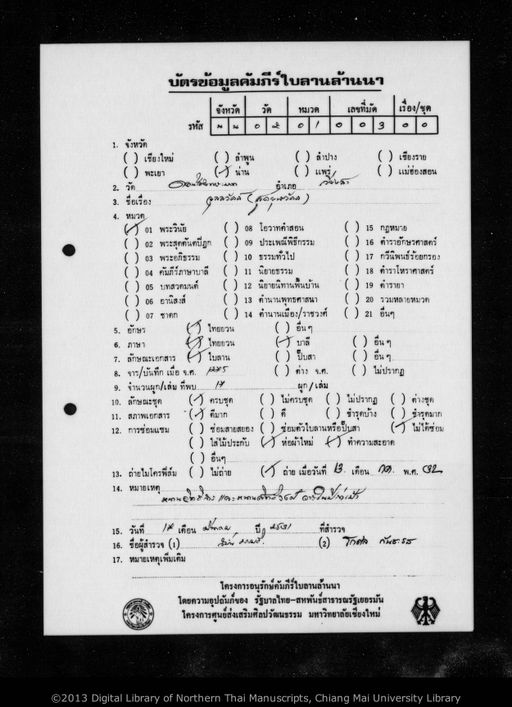 บัตรข้อมูลคัมภีร์ใบลานล้านนา
จังหวัด วัด หมวด เลขที่มัด เรื่อง/ชุด
รหัส น น 0 2 0 1 0 0 3 0 0
1. จังหวัด
( ) เชียงใหม่ ( ) ลำพูน ( ) ลำปาง ( ) เชียงราย
( ) พะเยา (/) น่าน ( ) แพร่ ( ) แม่ฮ่องสอน
2. วัด อำเภอ
3. ชื่อเรื่อง
4. หมวด
(/) 01 พระวินัย ( ) 08 โอวาทคำสอน ( ) 15 กฎหมาย
( ) 02 พระสุตตันตปิฎก ( ) 09 ประเพณีพิธีกรรม ( ) 16 ตำราอักษรศาสตร์
( ) 03 พระอภิธรรม ( ) 10 ธรรมทั่วไป ( ) 17 กวีนิพนธ์ร้อยกรอง
( ) 04 คัมภีร์ภาษาบาลี ( ) 11 นิยายธรรม ( ) 18 ตำราโหราศาสตร์
( ) 05 บทสวดมนต์ ( ) 12 นิยายนิทานพื้นบ้าน ( ) 19 ตำรายา
( ) 06 อานิสงส์ ( ) 13 ตำนานพุทธศาสนา ( ) 20 รวมหลายหมวด
( ) 07 ชาดก ( ) 14 ตำนานเมือง/ราชวงศ์ ( ) 21 อื่นๆ
5. อักษร (/) ไทยยวน ( ) อื่นๆ
6. ภาษา (/) ไทยยวน (/) บาลี ( ) อื่นๆ
7. ลักษณะเอกสาร (/) ใบลาน ( ) ปั๊บสา ( ) อื่นๆ
8. จาร/บันทึก เมื่อ จ.ศ. ( ) ต่าง จ.ศ. ( ) ไม่ปรากฏ
9. จำนวนผูก/เล่ม ที่พบ 17 ผูก/เล่ม
10. ลักษณะชุด (/) ครบชุด ( ) ไม่ครบชุด ( ) ไม่ปรากฏ ( ) ต่างชุด
11. สภาพเอกสาร (/) ดีมาก ( ) ดี ( ) ชำรุดบ้าง ( ) ชำรุดมาก
12. การซ่อมแซม ( ) ซ่อมสายสยอง ( ) ซ่อมตัวใบลานหรือปั๊บสา (/) ไม่ได้ซ่อม
( ) ใส่ไม้ประกับ (/) ห่อผ้าใหม่ (/) ทำความสะอาด
( ) อื่นๆ
13. ถ่ายไมโครฟิล์ม ( ) ไม่ถ่าย (/) ถ่าย เมื่อวันที่ 13. เดือน กค. พ.ศ. 32
14. หมายเหตุ
15. วันที่ 17 เดือน ปี 2531 ที่สำรวจ
16. ชื่อผู้สำรวจ (1) (2)
17. หมายเหตุเพิ่มเติม
โครงการอนุรักษ์คัมภีร์ใบลานล้านนา
โดยความอุปถัมภ์ของ รัฐบาลไทย-สหพันธ์สาธารณรัฐเยอรมัน
โครงการศูนย์ส่งเสริมศิลปวัฒนธรรม มหาวิทยาลัยเชียงใหม่
©2013 Digital Library of Northern Thai Manuscripts, Chiang Mai University Library